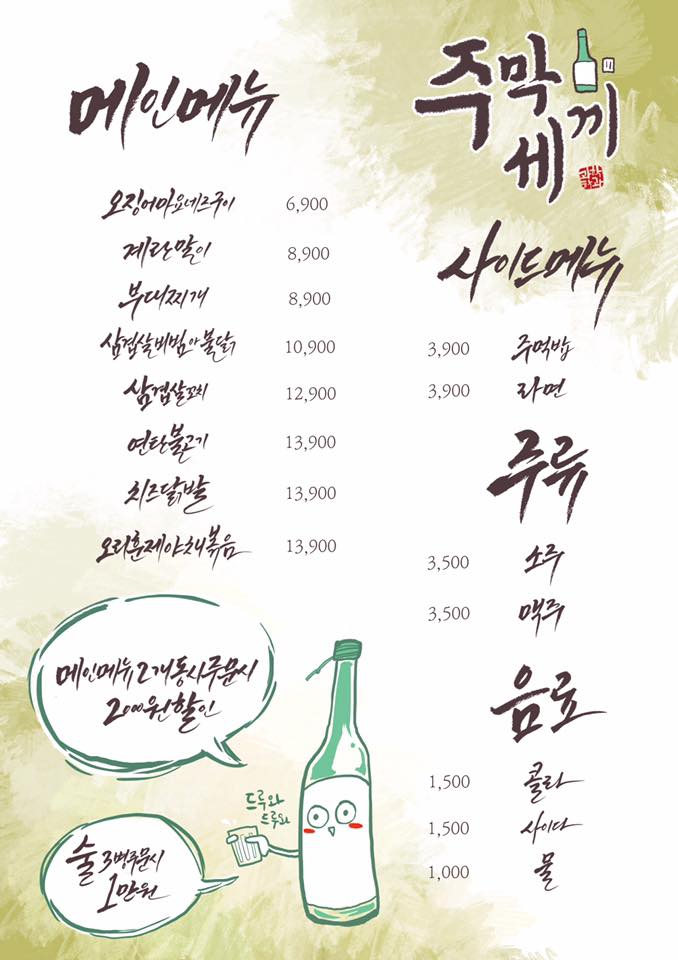 메인메뉴
오징어마요네즈구이 6,900
계란말이 8,900
부대찌개 8,900
삼겹살비빔마불닭 10,900
삼겹살꼬치 12,900
연탄불고기 13,900
치즈닭발 13,900
오리훈제야채볶음 13,900
메인메뉴 2개동시주문시
2000원할인
술 3병주문시
1만원
드루와
드루와
주막
세끼
사이드메뉴
3,900 주먹밥
3,900 라면
주류
3,500 소주
3,500 맥주
음료
1,500 콜라
1,500 사이다
1,000 물